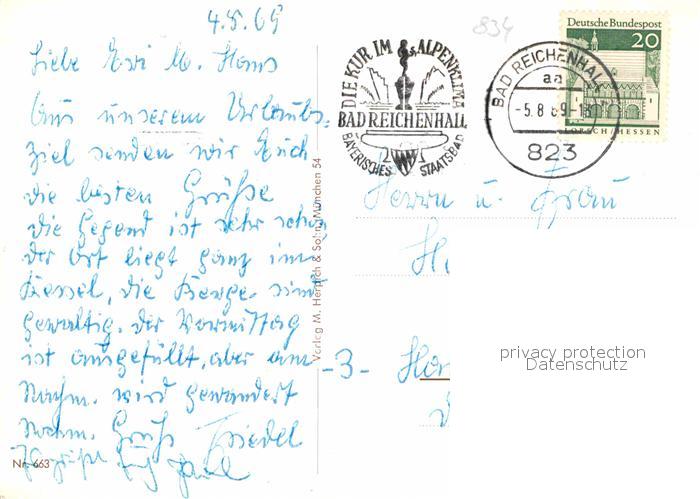 4.8.69
Liebe Evi u. Hans
Aus unserem Urlaubs-
ziel senden wir Euch
die besten Grüße
die Gegend ist sehr schön
der Ort liegt ganz im
Kessel, die Berge sind
gewaltig. der Vormittag
ist ausgefüllt, aber am
Nachm. wird gewandert
Nochm. Gruß Friedel
Nr. 663
Verlag M. Herpich & Sohn, München 54
834
DIE KUR IM ALPENKLIMA
BAD REICHENHALL
BAYERISCHES STAATSBAD
BAD REICHENHALL
aa
-5.8.69-18
823
Deutsche Bundespost
20
LORSCH/HESSEN
Herrn u. Frau
H
-3-
Han
privacy protection
Datenschutz